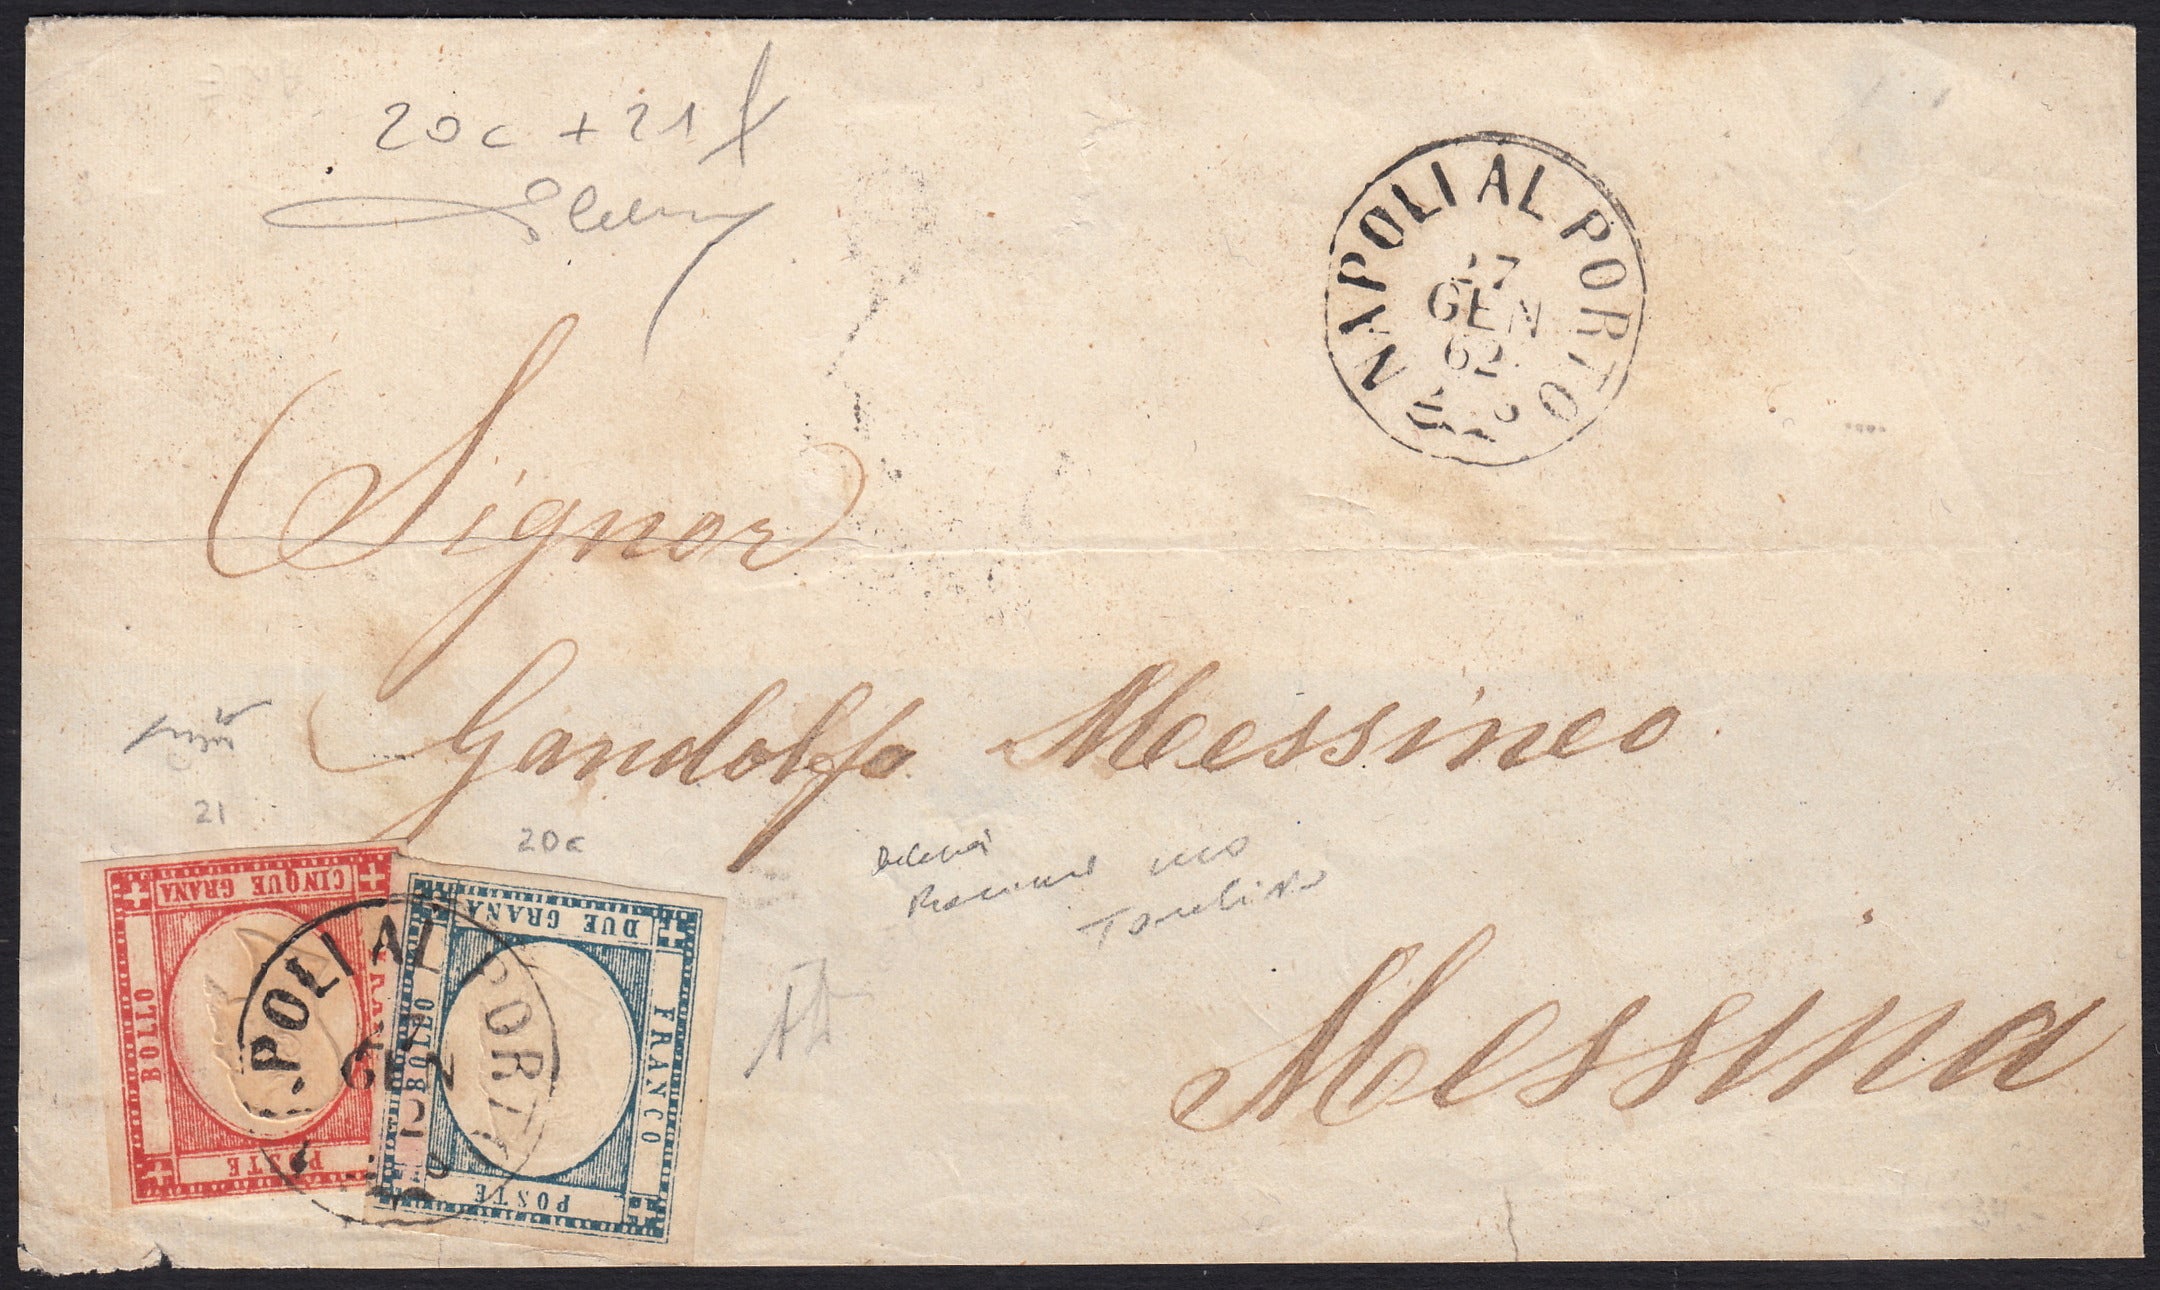 20c + 21
NAPOLI AL PORTO
27
GEN
62
Signor
Gandolfo Messineo
21
20c
Messina
CINQUE GRANA
BOLLO
POSTE
DUE GRANA
BOLLO
FRANCO
POSTE
POLI AL PORT
GEN